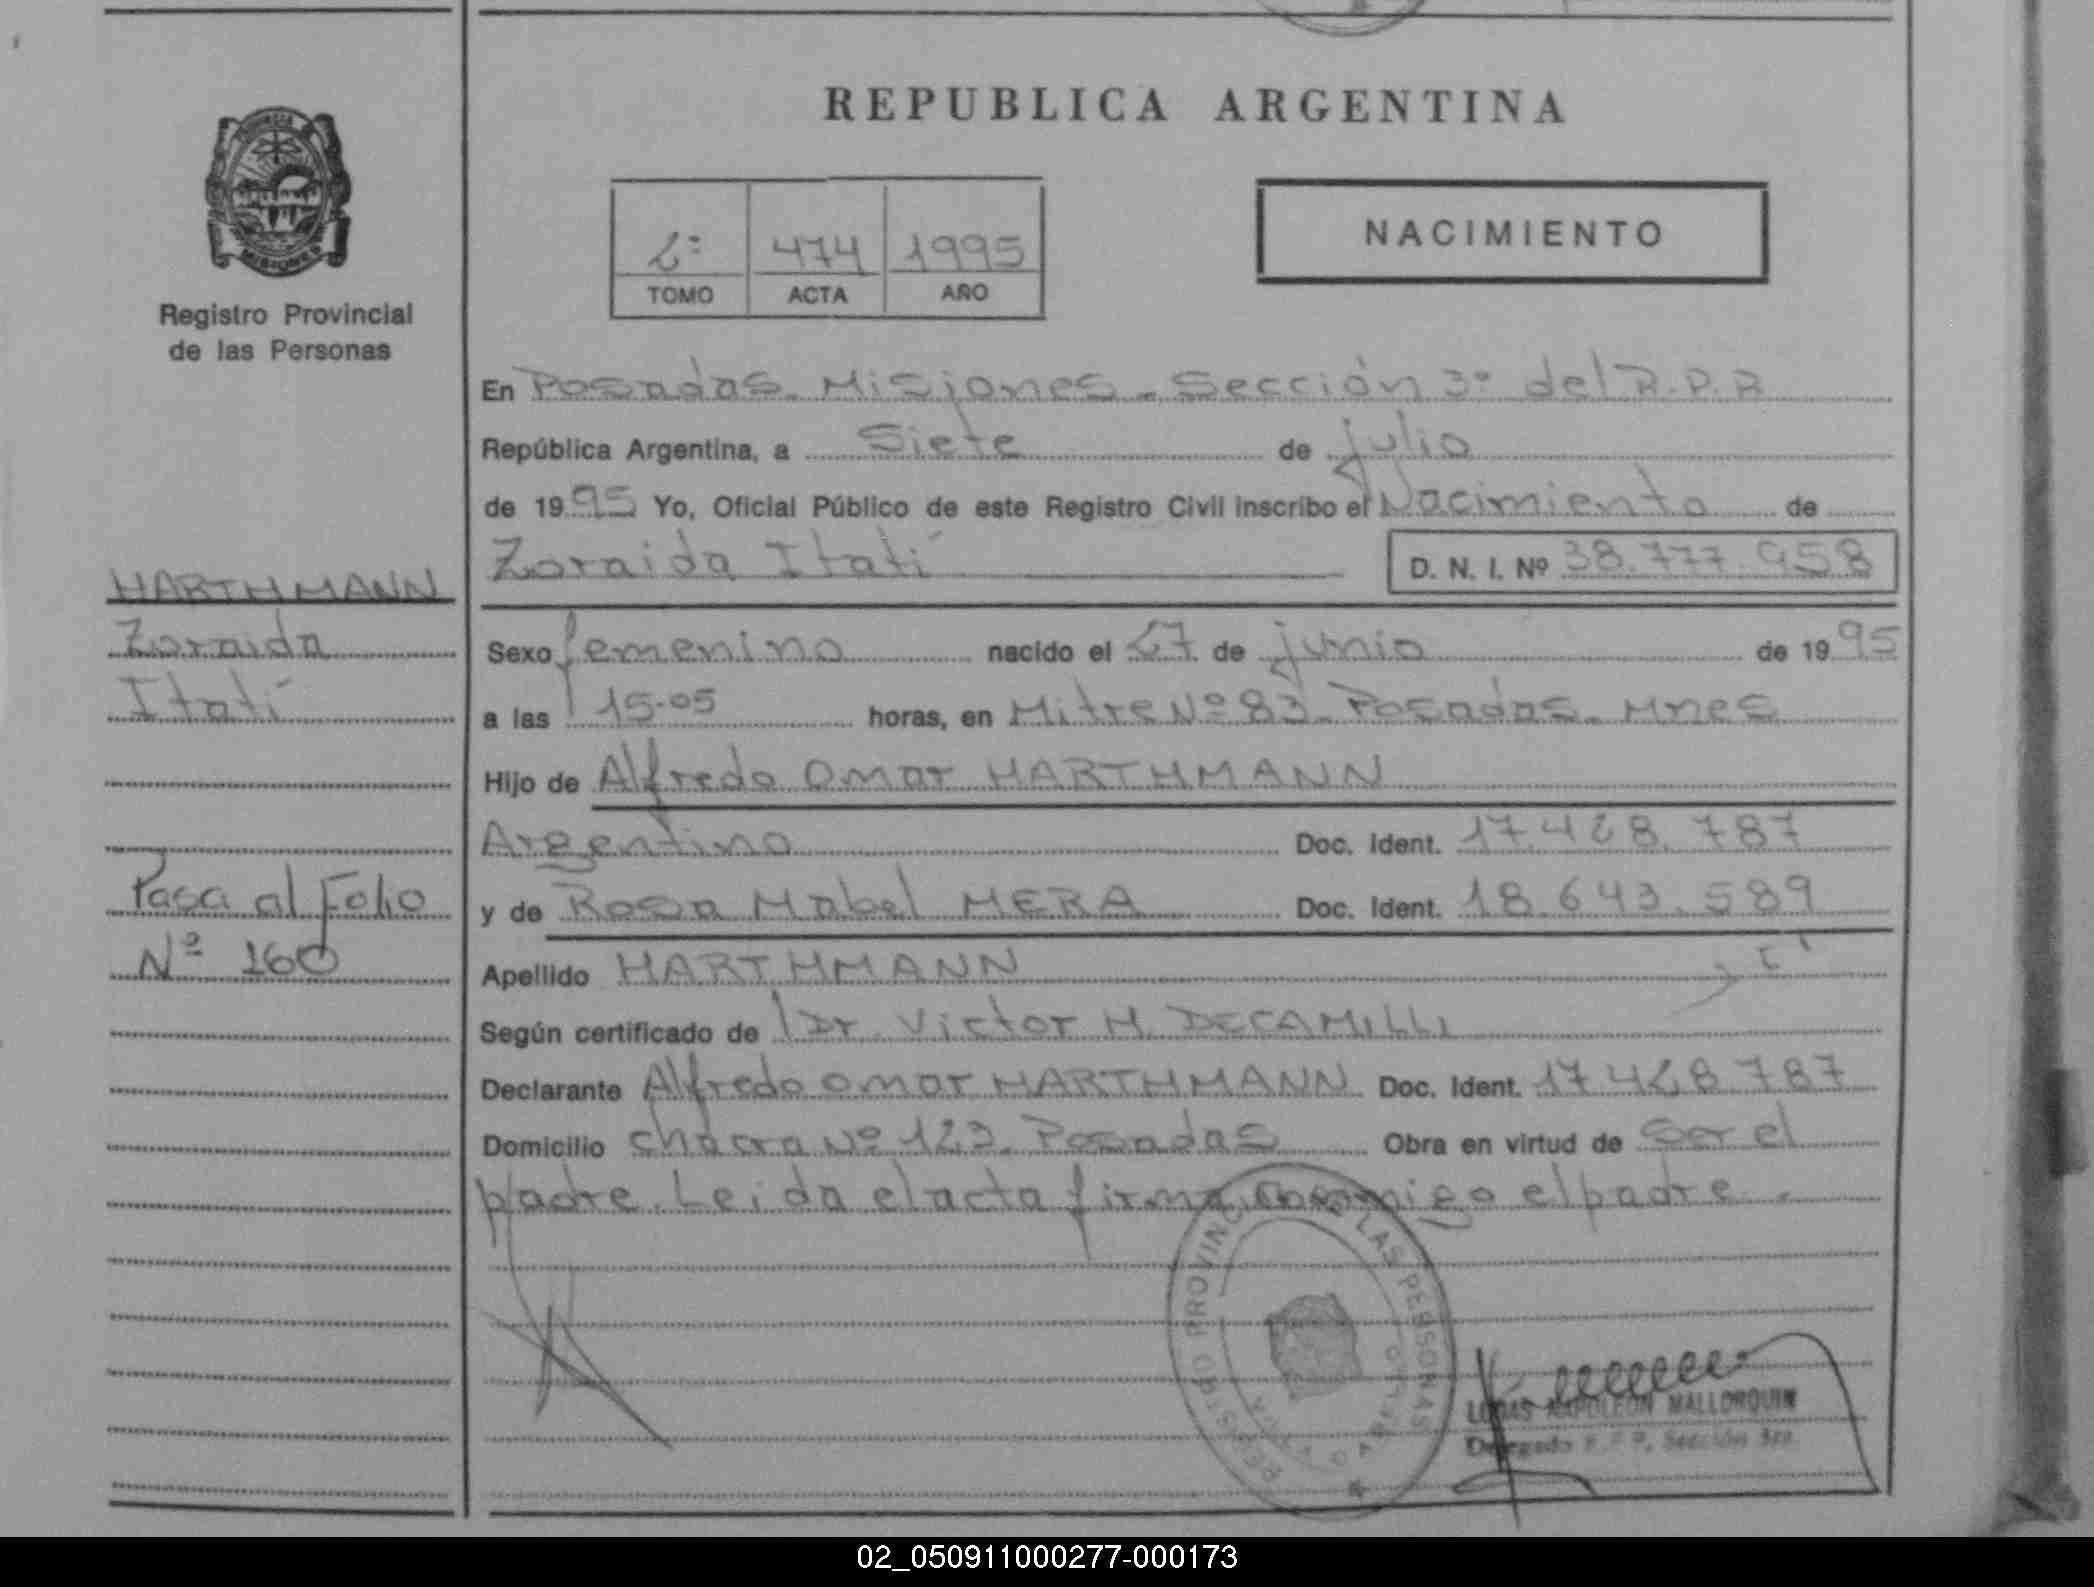 REPUBLICA ARGENTINA
PROVINCIA DE
MISIONES
Registro Provincial
de las Personas
2º 474 1995
TOMO ACTA AÑO
NACIMIENTO
En Posadas. Misiones. Sección 3º del R.P.P
República Argentina, a Siete de julio
de 1995 Yo, Oficial Público de este Registro Civil inscribo el Nacimiento de
Zoraida Itatí D. N. I. Nº 38.777.958
HARTHMANN
Zoraida
Itatí
Sexo femenino nacido el 27 de junio de 1995
a las 15.05 horas, en Mitre Nº 83. Posadas. Mnes
Hijo de Alfredo Omar HARTHMANN
Argentino Doc. Ident. 17.428.787
y de Rosa Mabel MERA Doc. Ident. 18.643.589
Pasa al Folio
Nº 160
Apellido HARTHMANN
Según certificado de Dr. Victor H. DECAMILLI
Declarante Alfredo Omar HARTHMANN Doc. Ident. 17428787
Domicilio chacra Nº 123. Posadas Obra en virtud de Ser el
padre. Leida el acta firma conmigo el padre.
REGISTRO PROVINCIAL DE LAS PERSONAS
LUCAS NAPOLEON MALLORQUIN
Delegado R.P.P. Sección 3ra.
02_050911000277-000173